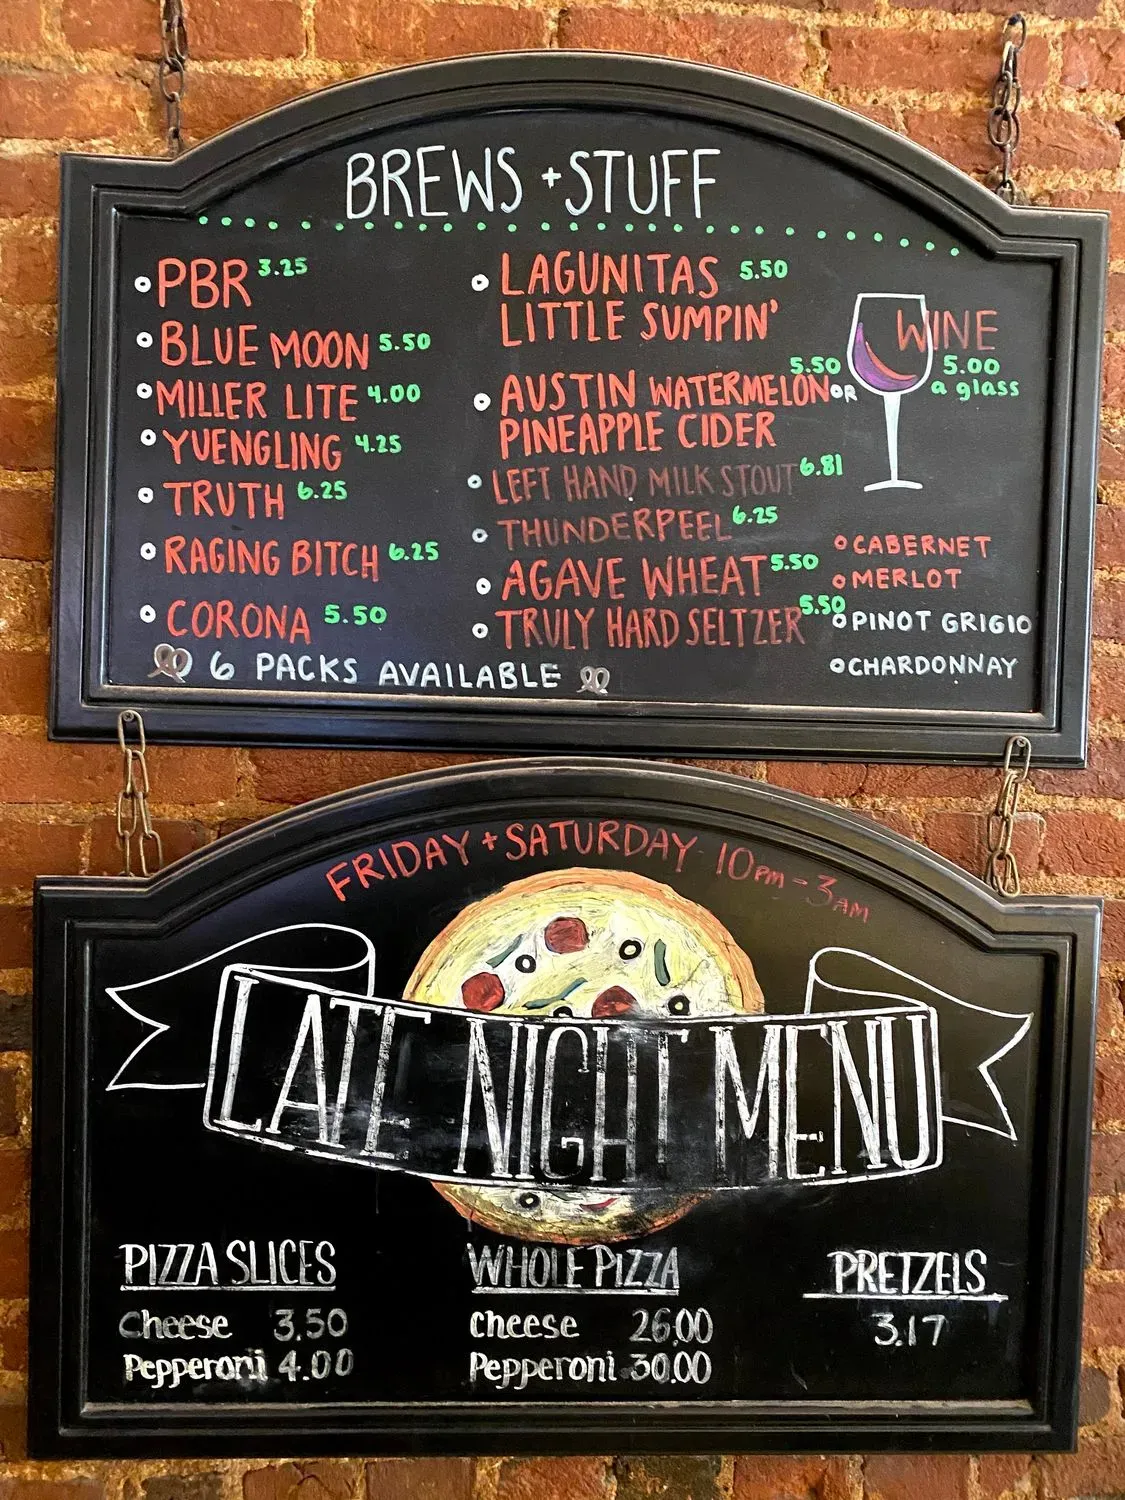 BREWS + STUFF
PBR 3.25
BLUE MOON 5.50
MILLER LITE 4.00
YUENGLING 4.25
TRUTH 6.25
RAGING BITCH 6.25
CORONA 5.50
6 PACKS AVAILABLE
LAGUNITAS 5.50
LITTLE SUMPIN'
AUSTIN WATERMELON OR 5.50
PINEAPPLE CIDER
LEFT HAND MILK STOUT 6.81
THUNDERPEEL 6.25
AGAVE WHEAT 5.50
TRULY HARD SELTZER 5.50
WINE
5.00
a glass
CABERNET
MERLOT
PINOT GRIGIO
CHARDONNAY
FRIDAY + SATURDAY 10PM - 3AM
LATE NIGHT MENU
PIZZA SLICES
Cheese 3.50
Pepperoni 4.00
WHOLE PIZZA
cheese 26.00
Pepperoni 30.00
PRETZELS
3.17